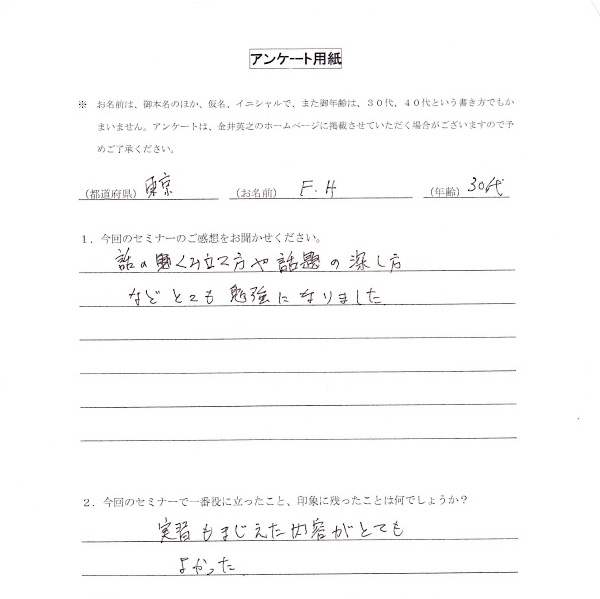 アンケート用紙
※ お名前は、御本名のほか、仮名、イニシャルで、また御年齢は、３０代、４０代という書き方でもか
まいません。アンケートは、金井英之のホームページに掲載させていただく場合がございますので予
めご了承ください。
（都道府県） 東京 （お名前） F.H （年齢） 30代
１．今回のセミナーのご感想をお聞かせください。
話の くみ立て方や話題の深し方
などとても勉強になりました
２．今回のセミナーで一番役に立ったこと、印象に残ったことは何でしょうか？
実習もまじえた内容がとても
よかった